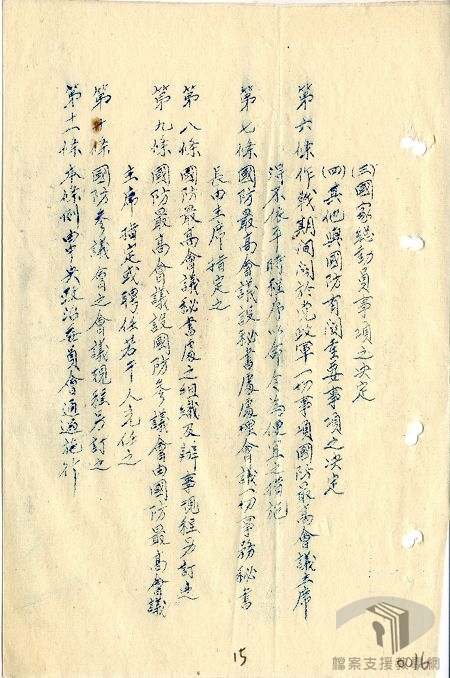 (三)國家總動員事項之決定
(四)其他與國防有關重要事項之決定
第六條 作戰期間關於党政軍一切事項國防最高會議主席
得不依平時程序以命令為便宜之措施
第七條 國防最高會議設秘書處處理會議一切事務秘書
長由主席指定之
第八條 國防最高會議秘書處之組織及辦事規程另訂之
第九條 國防最高會議設國防參議會由國防最高會議
主席指定或聘任若干人充任之
第十條 國防參議會之會議規程另訂之
第十一條 本條例由中央政治委員會通過施行
15
檔案支援教學網